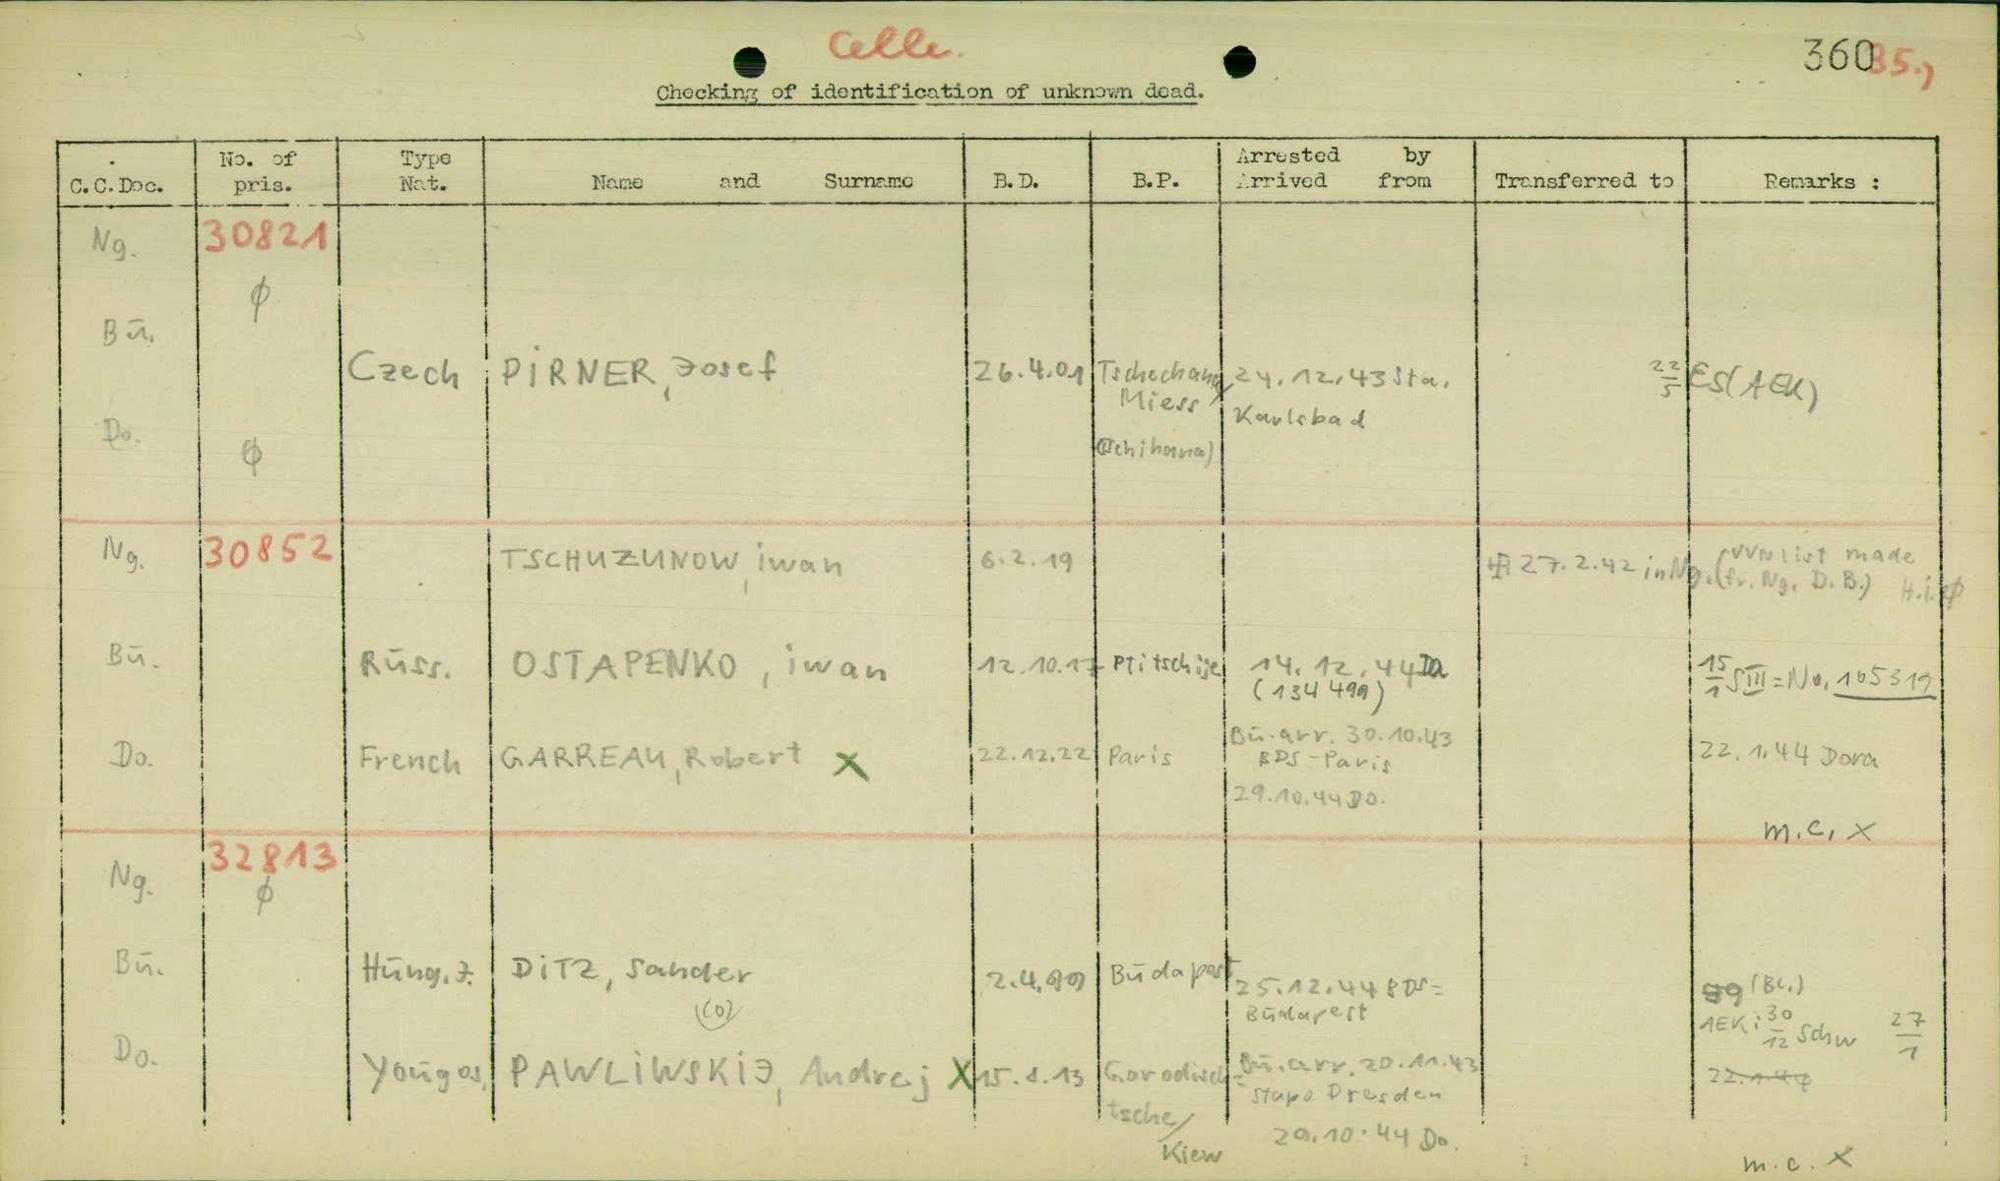 Celle.
36035.,
Checking of identification of unknown dead.
C.C.Doc. No. of pris. Type Nat. Name and Surname B.D. B.P. Arrested by Arrived from Transferred to Remarks :
Ng. 30821
φ
Bū.
Czech PIRNER, Josef 26.4.01 Tschechana/ 24.12.43 Sta. 22/5 ES(AEK)
Miess Karlsbad
Do. φ (Tschihana)
Ng. 30852 TSCHUZUNOW, iwan 6.2.19 27.2.42 in Ng. (VVN list made
fr. Ng. D.B.) H.i. φ
Bū. Rūss. OSTAPENKO, iwan 12.10.17 Ptitschije 14.12.44 Da 15/1 SIII = No. 105319
(134499)
Do. French GARREAU, Robert X 22.12.22 Paris Bū. arr. 30.10.43 22.1.44 Dora
BDS-Paris
29.10.44 Do.
m.c. x
Ng. 32813
φ
Bū. Hūng.J. DITZ, Sander 2.4.99 Būdapest 25.12.44 BDS= 99 (BU.)
(o) Būdapest AEK: 30/12 Schw 27/1
Do. Yoūgos. PAWLIWSKIJ, Andrej X 15.8.13 Gorodisch= Bū. arr. 20.11.43 22.1.44
tsche/ Stapo Dresden
Kiew 29.10.44 Do.
m.c. x